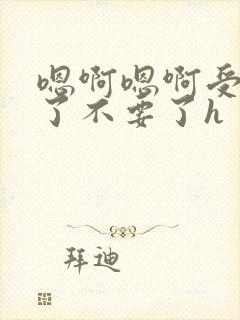 嗯啊嗯啊受
了不要了h
拜迪